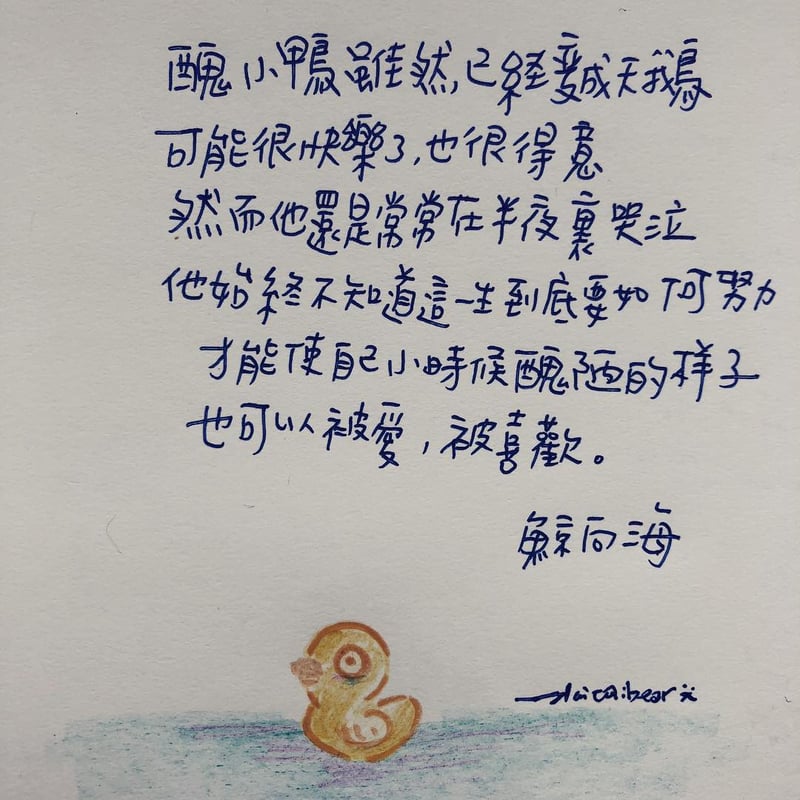 醜小鴨雖然,已經變成天鵝
可能很快樂了,也很得意
然而他還是常常在半夜裏哭泣
他始終不知道這一生到底要如何努力
才能使自己小時候醜陋的樣子
也可以被愛,被喜歡。
鯨向海